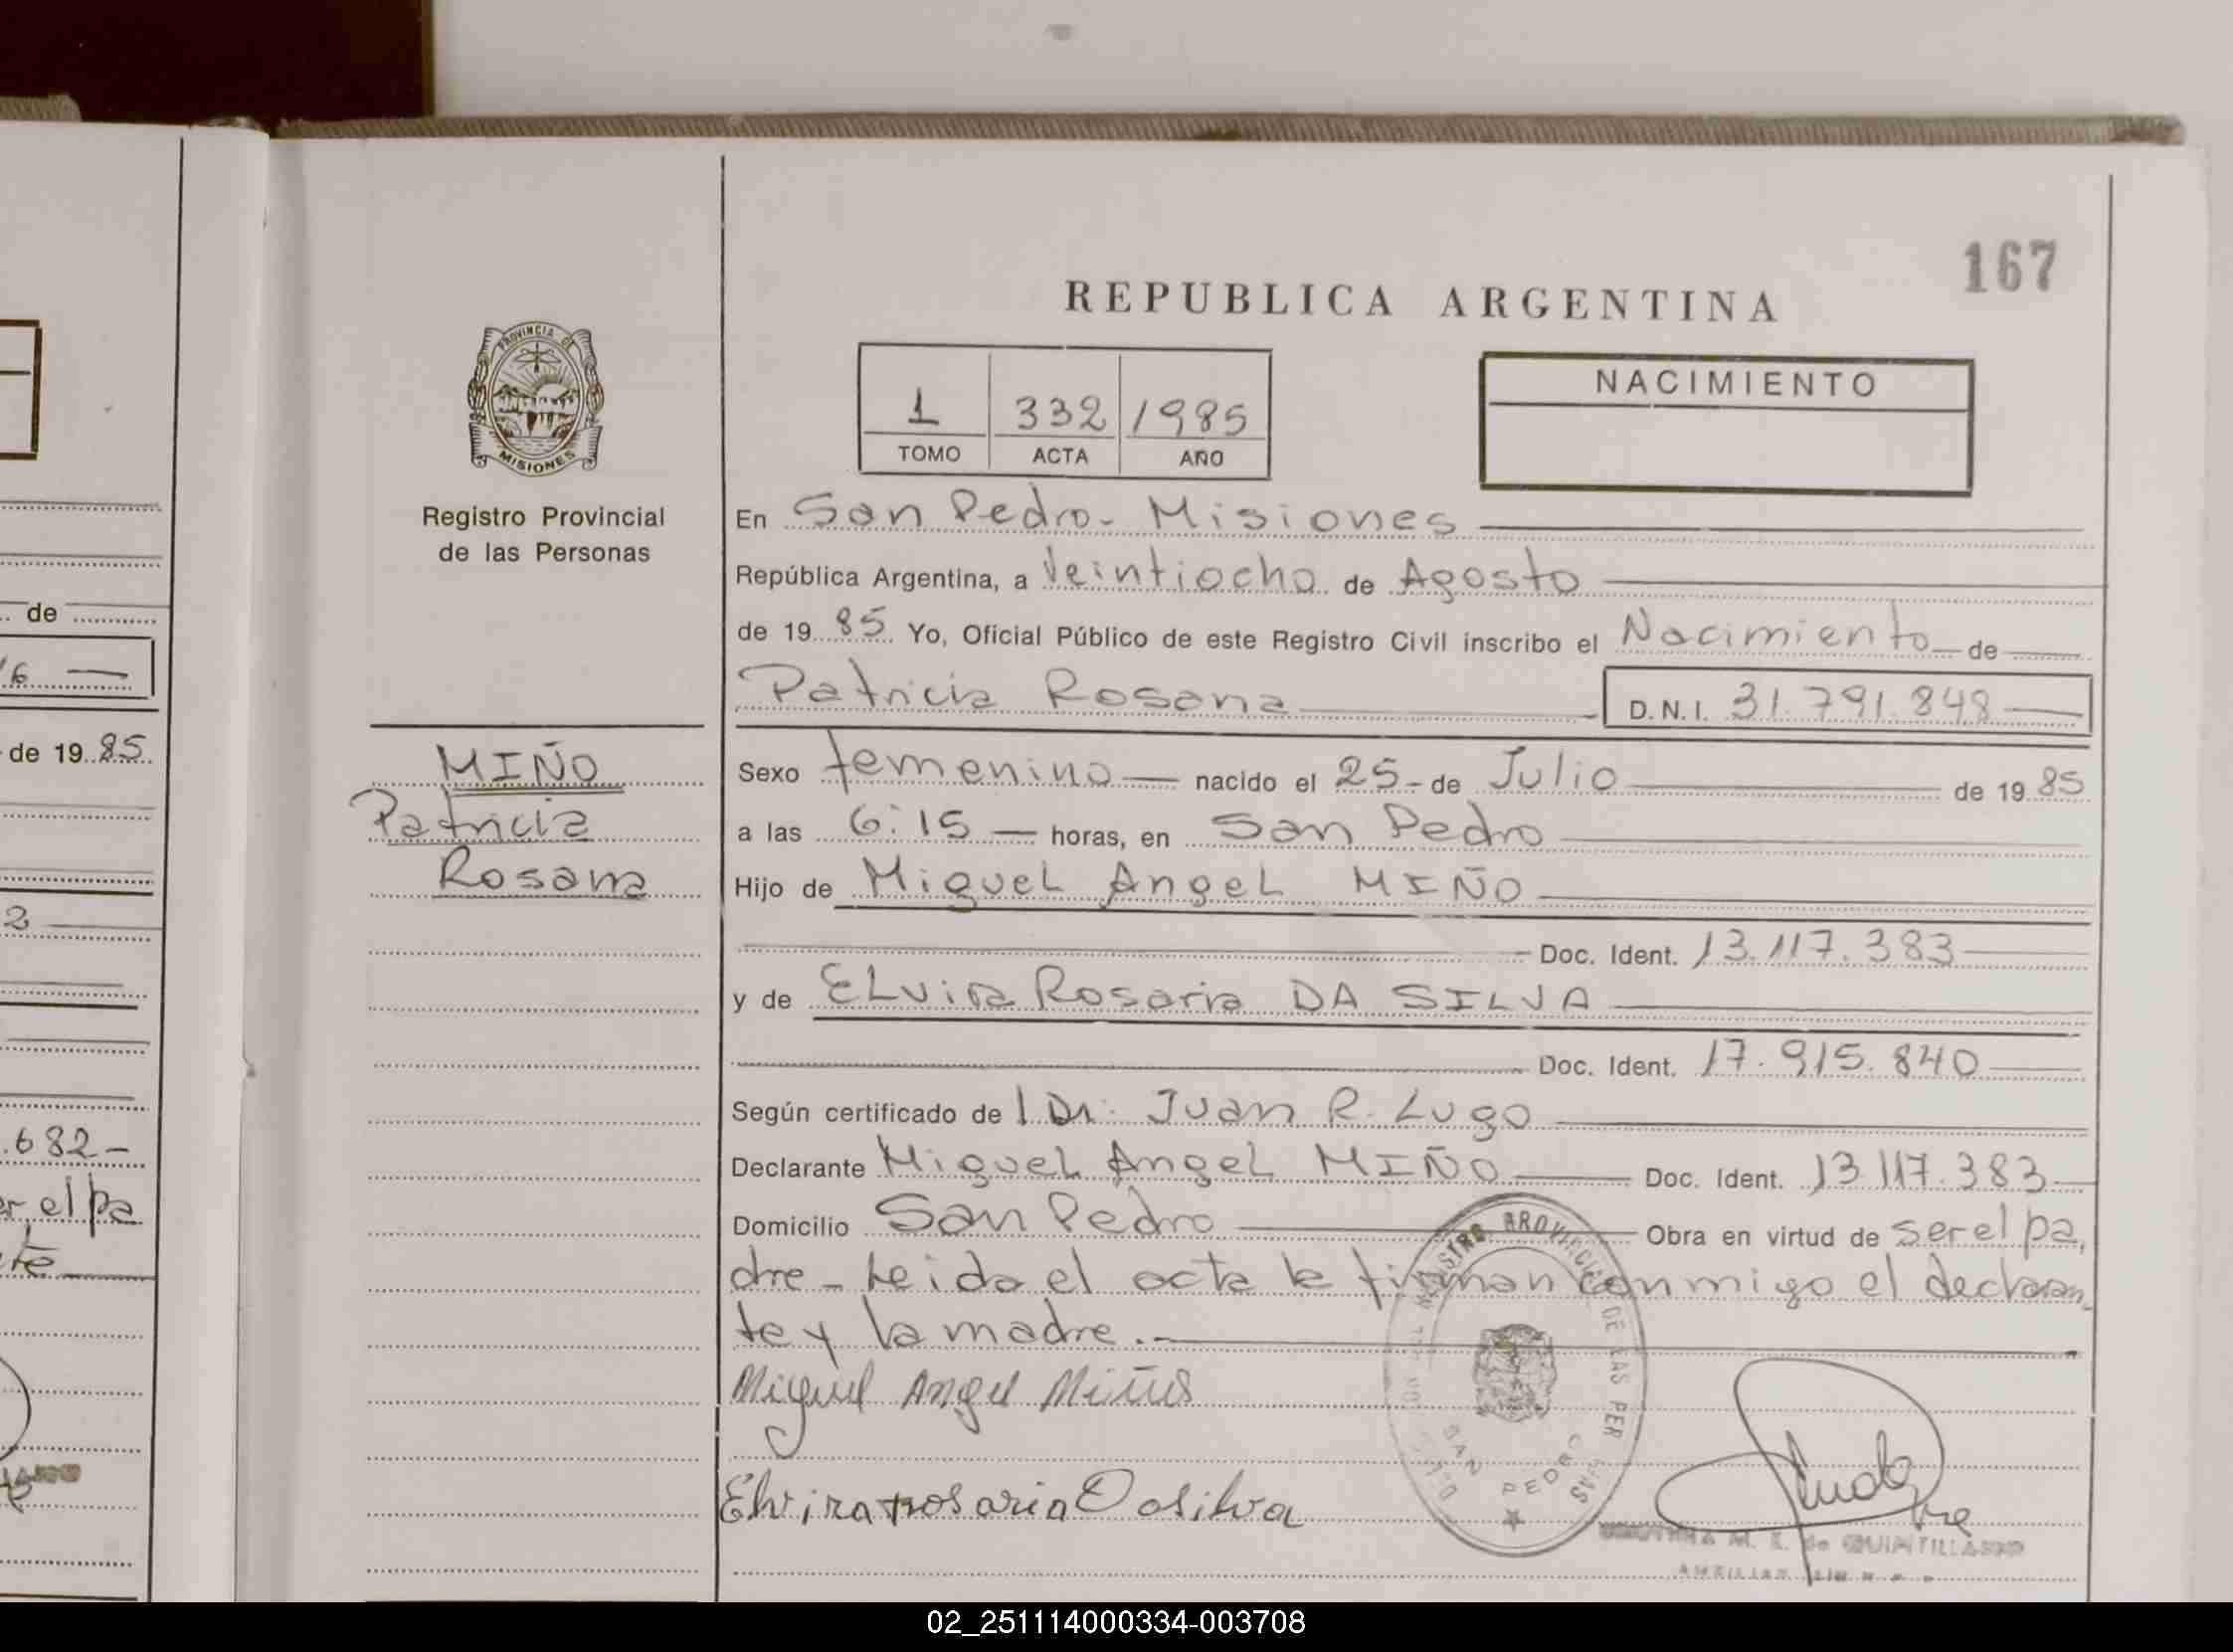 167
REPUBLICA ARGENTINA
PROVINCIA DE
MISIONES
1 332 1985
TOMO ACTA AÑO
NACIMIENTO
Registro Provincial
de las Personas
En San Pedro - Misiones
República Argentina, a Veintiocho de Agosto
de 1985 Yo, Oficial Público de este Registro Civil inscribo el Nacimiento de
Patricia Rosana D.N.I. 31.791.848
MIÑO
Patricia
Rosana
Sexo femenino nacido el 25 - de Julio de 1985
a las 6:15 horas, en San Pedro
Hijo de Miguel Angel MIÑO
Doc. Ident. 13.117.383
y de Elvira Rosaria DA SILVA
Doc. Ident. 17.915.840
Según certificado de l Dr. Juan R. Lugo
Declarante Miguel Angel MIÑO Doc. Ident. 13.117.383
Domicilio San Pedro Obra en virtud de ser el pa
dre - Leida el acta la firman conmigo el declaran
te y la madre.-
Miguel Angel Miño
Elvira rosaria Dasilva
REGISTRO PROVINCIAL DE LAS PERSONAS
SAN PEDRO
M. E. de QUINTILLANO
de
16
de 1985
2
.682-
er el pa
te
02_251114000334-003708